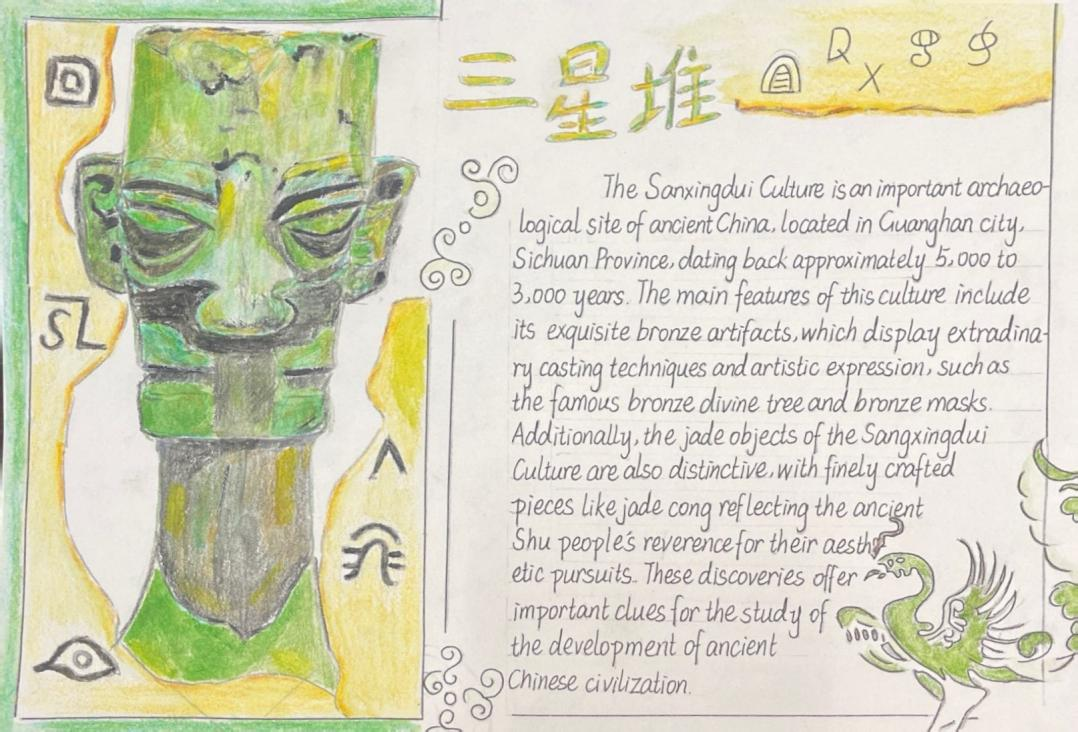 三星堆
The Sanxingdui Culture is an important archaeo-
logical site of ancient China, located in Guanghan city,
Sichuan Province, dating back approximately 5,000 to
3,000 years. The main features of this culture include
its exquisite bronze artifacts, which display extradina-
ry casting techniques and artistic expression, such as
the famous bronze divine tree and bronze masks.
Additionally, the jade objects of the Sangxingdui
Culture are also distinctive, with finely crafted
pieces like jade cong reflecting the ancient
Shu people's reverence for their aesth
etic pursuits. These discoveries offer
important clues for the study of
the development of ancient
Chinese civilization.